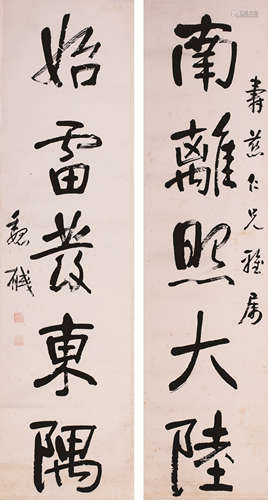 壽慈仁兄雅屬
南離照大陸
始雷發東隅
魏戫